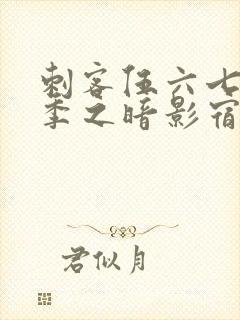 刺客伍六七
季之暗影宿
君似月